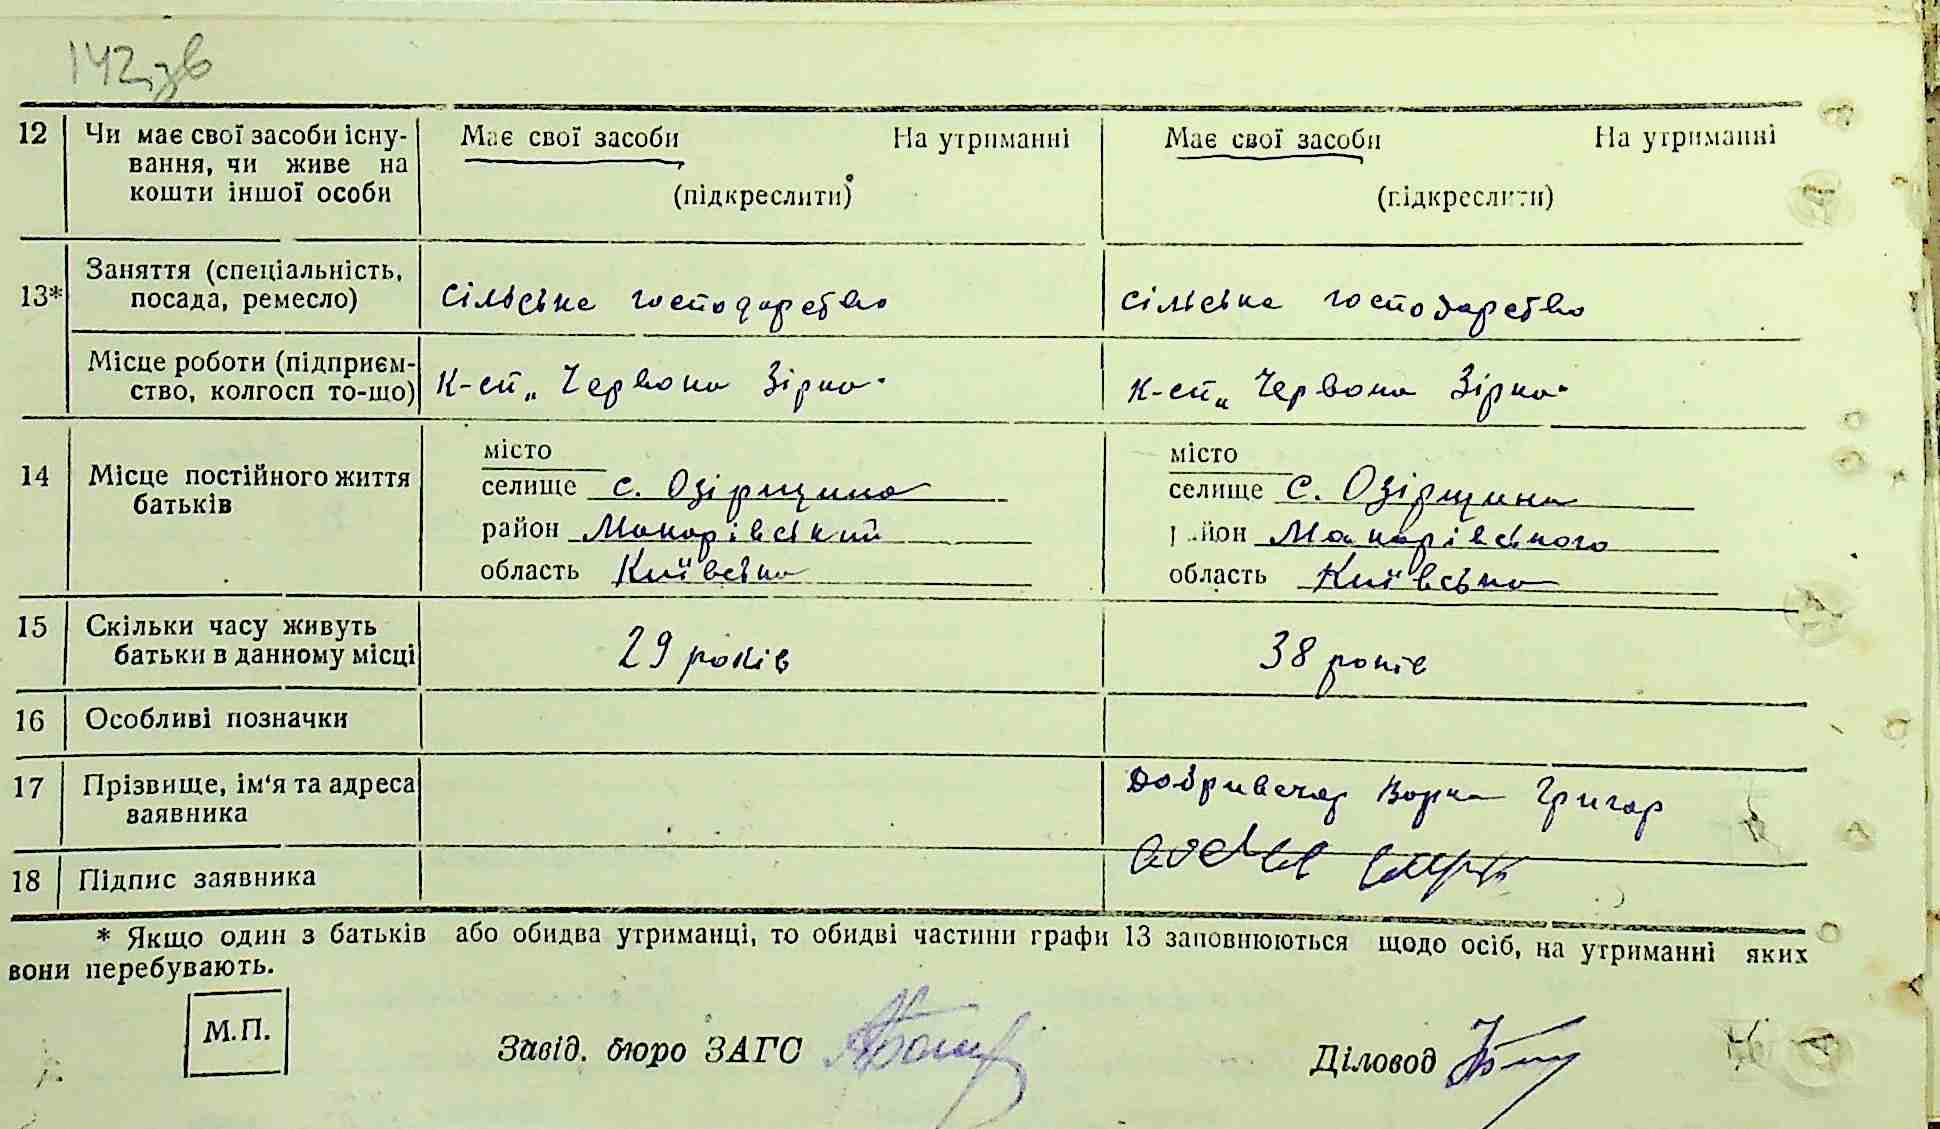 142зв
12 Чи має свої засоби існу- Має свої засоби На утриманні Має свої засоби На утриманні
вання, чи живе на
кошти іншої особи (підкреслити) (підкреслити)
Заняття (спеціальність,
13* посада, ремесло) сільське господарство сільське господарство
Місце роботи (підприєм-
ство, колгосп то-що) К-сп „Червона Зірка" К-сп „Червона Зірка"
місто місто
14 Місце постійного життя селище с. Озірщина селище с. Озірщина
батьків район Макарівський район Макарівського
область Київська область Київська
15 Скільки часу живуть
батьки в данному місці 29 років 38 років
16 Особливі позначки
17 Прізвище, ім'я та адреса Добривечір Варка Григор
заявника
18 Підпис заявника
* Якщо один з батьків або обидва утриманці, то обидві частини графи 13 заповнюються щодо осіб, на утриманні яких
вони перебувають.
М.П.
Завід. бюро ЗАГС Діловод